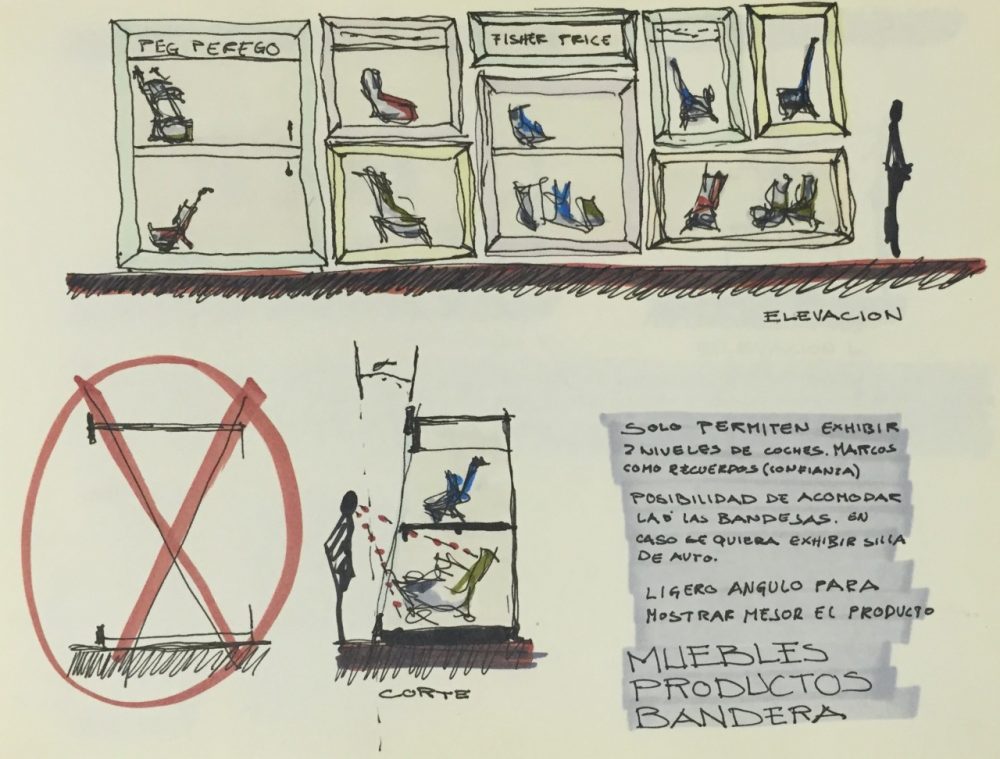 PEG PEREGO
FISHER PRICE
ELEVACION
CORTE
SOLO PERMITEN EXHIBIR
2 NIVELES DE COCHES. MARCOS
COMO RECUERDOS (CONFIANZA)
POSIBILIDAD DE ACOMODAR
LAS BANDEJAS. EN
CASO SE QUIERA EXHIBIR SILLA
DE AUTO.
LIGERO ANGULO PARA
MOSTRAR MEJOR EL PRODUCTO
MUEBLES
PRODUCTOS
BANDERA